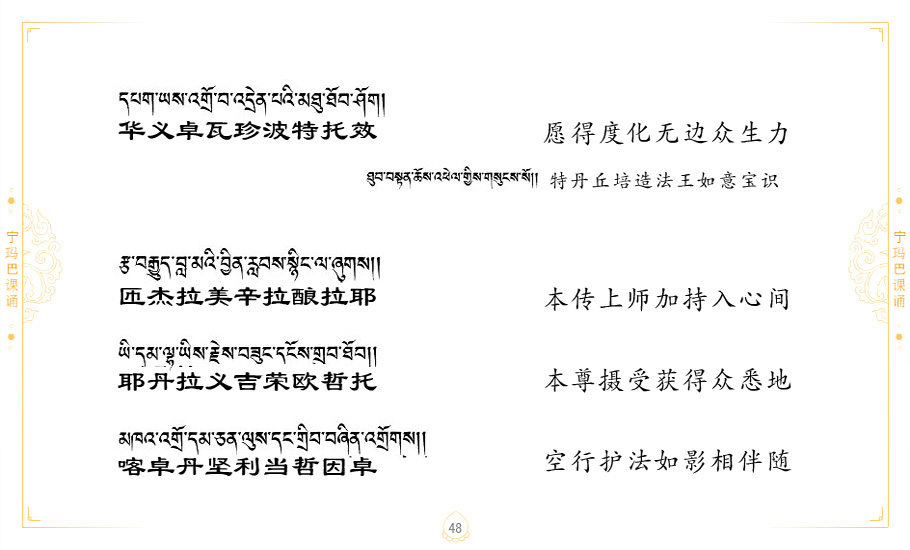 དཔག་ཡས་འགྲོ་བ་འདྲེན་པའི་མཐུ་ཐོབ་ཤོག།
华义卓瓦珍波特托效
愿得度化无边众生力
ཐུབ་བསྟན་ཆོས་འཕེལ་གྱིས་གསུངས་སོ།།
特丹丘培造法王如意宝识
རྩ་བརྒྱུད་བླ་མའི་བྱིན་རླབས་སྙིང་ལ་ཞུགས།།
匝杰拉美辛拉酿拉耶
本传上师加持入心间
ཡི་དམ་ལྷ་ཡིས་རྗེས་བཟུང་དངོས་གྲུབ་ཐོབ།།
耶丹拉义吉荣欧哲托
本尊摄受获得众悉地
མཁའ་འགྲོ་དམ་ཅན་ལུས་དང་གྲིབ་བཞིན་འགྲོགས།།
喀卓丹坚利当哲因卓
空行护法如影相伴随
宁玛巴课诵
宁玛巴课诵
48